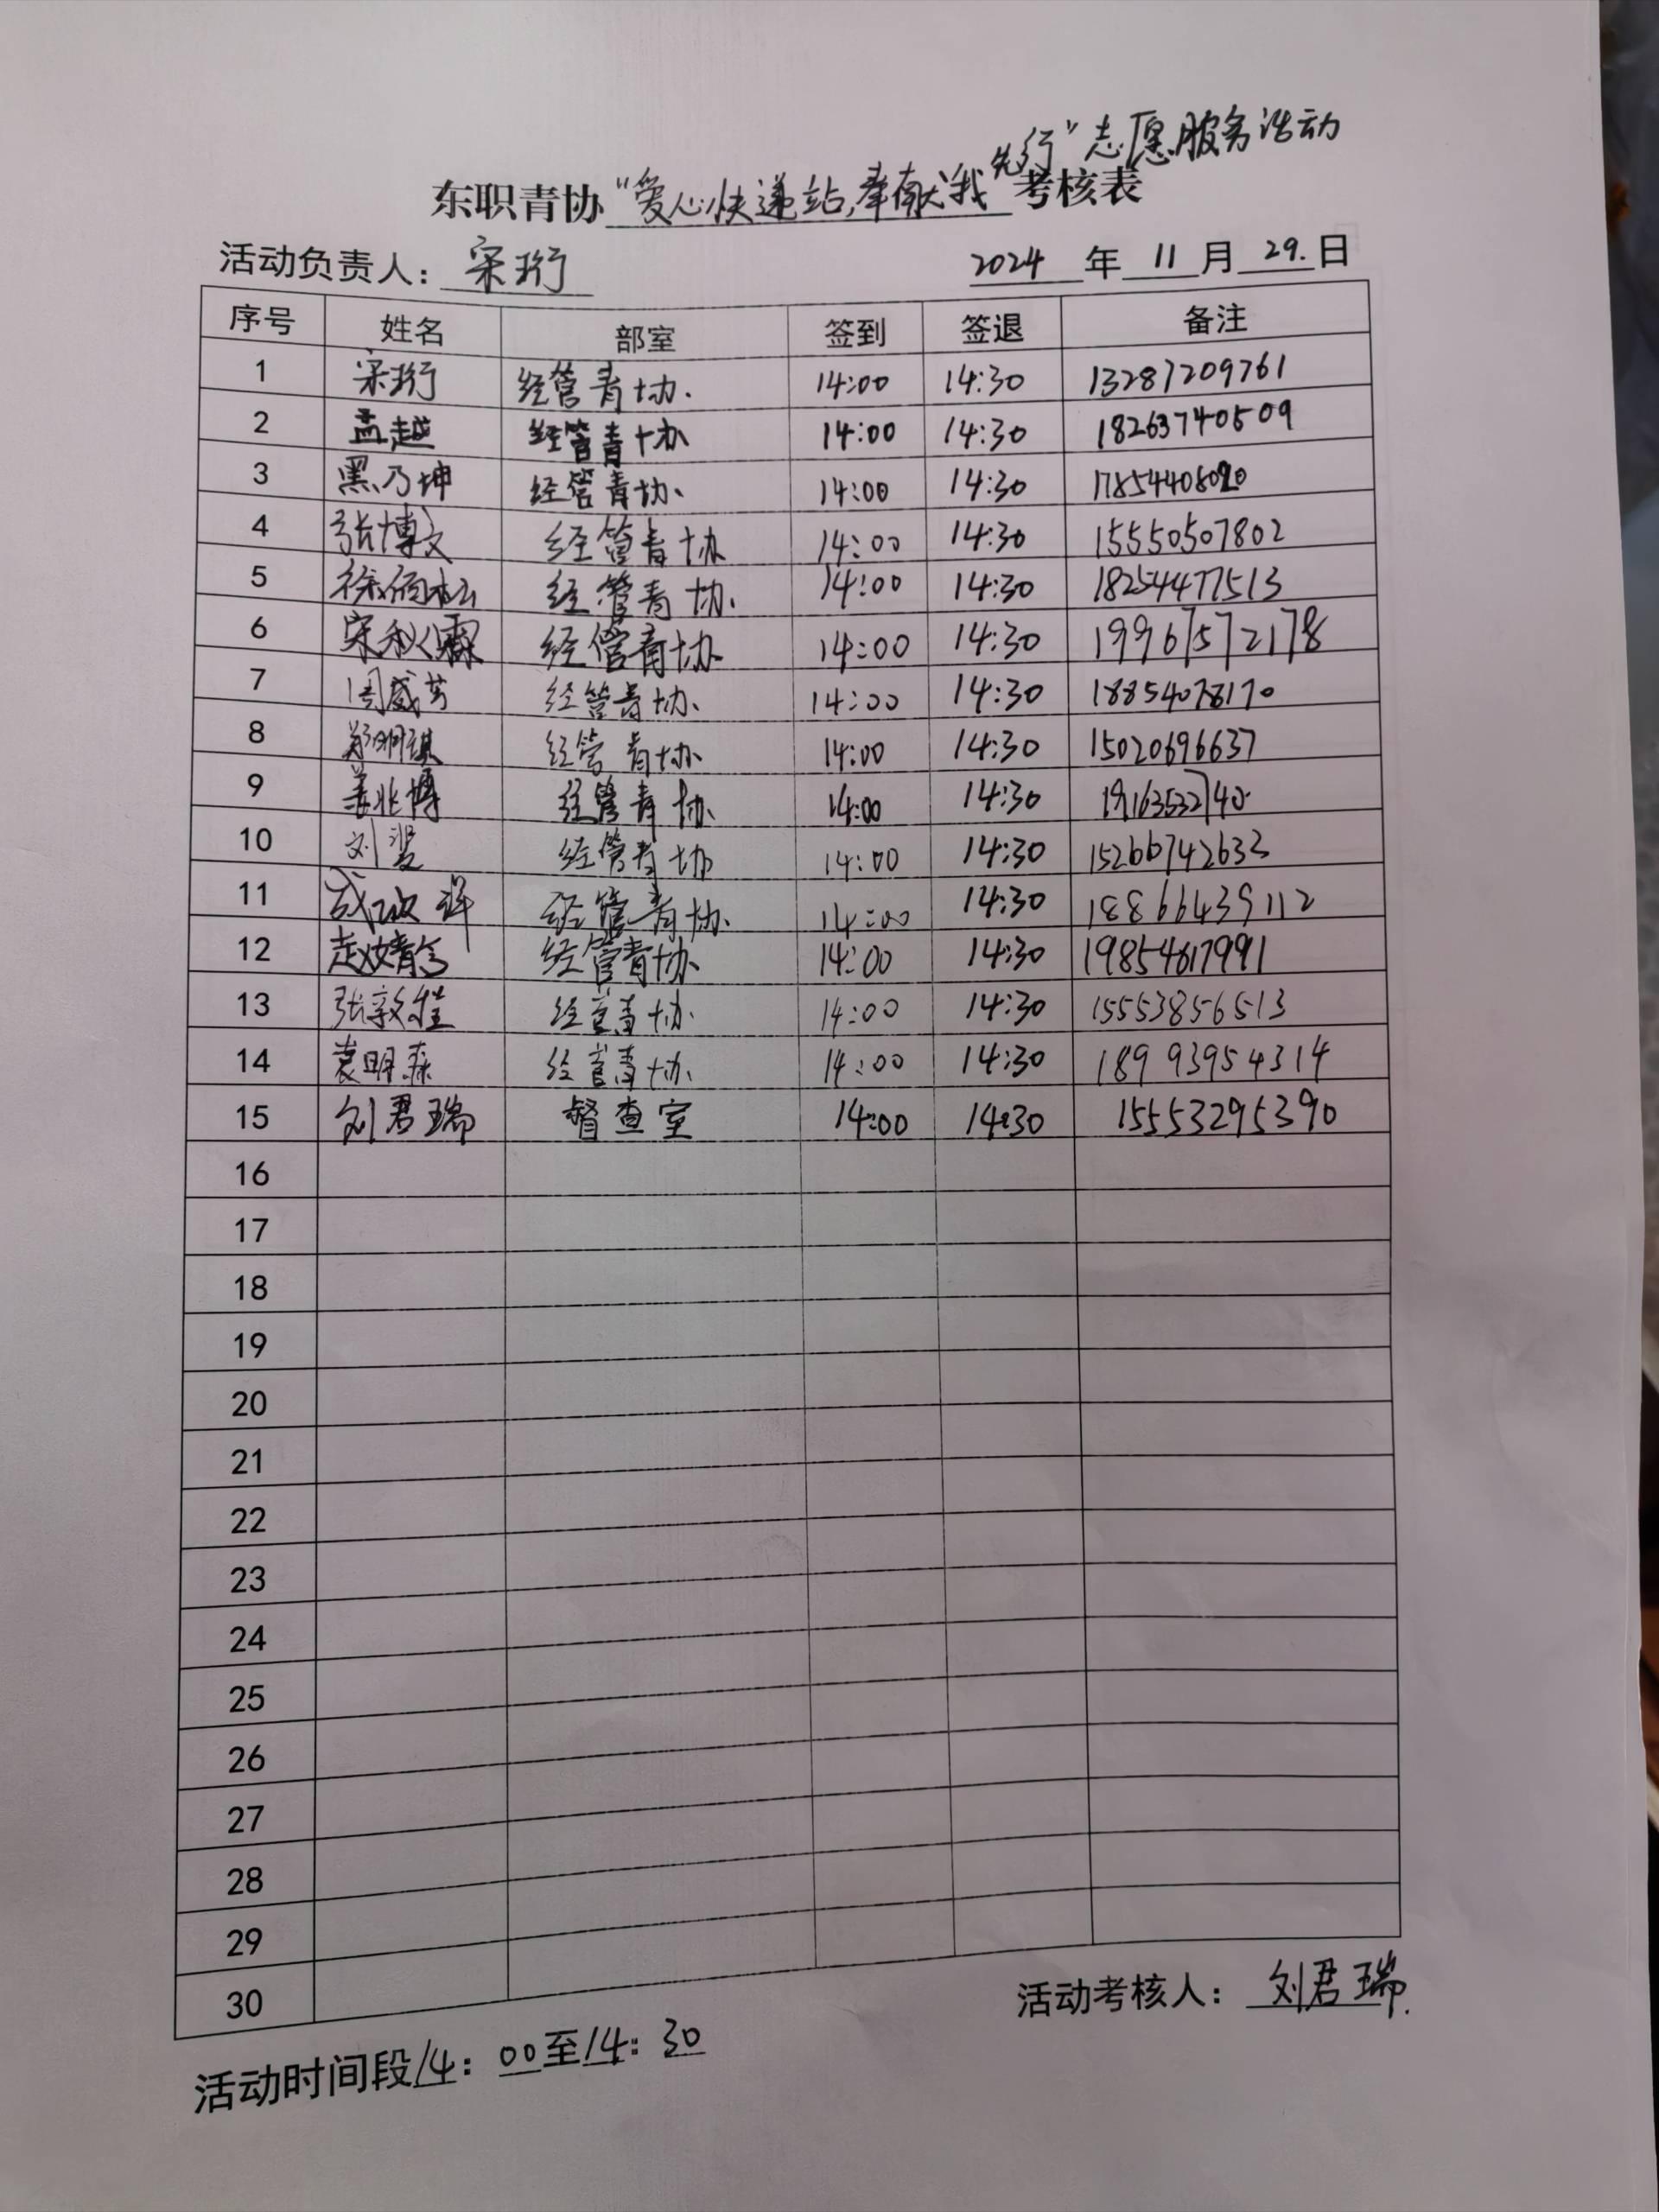 先行"志愿服务活动
东职青协"爱心快递站,奉献我考核表
活动负责人: 宋珩 2024 年 11 月 29. 日
序号 姓名 部室 签到 签退 备注
1 宋珩 经管青协. 14:00 14:30 13287209761
2 孟越 经管青协 14:00 14:30 18263740509
3 黑乃坤 经管青协、 14:00 14:30
4 张博文 经管青协 14:00 14:30 15550507802
5 经管青协. 14:00 14:30 18254477513
6 宋秋霖 经管青协 14:00 14:30 19967572178
7 周威芳 经管青协、 14:00 14:30 18854078170
8 郑明琪 经管青协 14:00 14:30 15020696637
9 姜兆博 经管青协. 14:00 14:30 19163532740
10 刘 经管青协 14:00 14:30 15266742633
11 经管青协. 14:00 14:30 18866439112
12 经管青协 14:00 14:30 19854617991
13 张敦程 经管青协 14:00 14:30 15553856513
14 袁明森 经管青协 14:00 14:30 18993954314
15 刘君瑞 督查室 14:00 14:30 15553295390
16
17
18
19
20
21
22
23
24
25
26
27
28
29
30
活动考核人: 刘君瑞.
活动时间段14: 00至14: 30